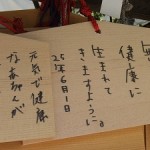 健康に
生まれて
きますように。
25年6月1日
元気で健康
な赤ちゃんが